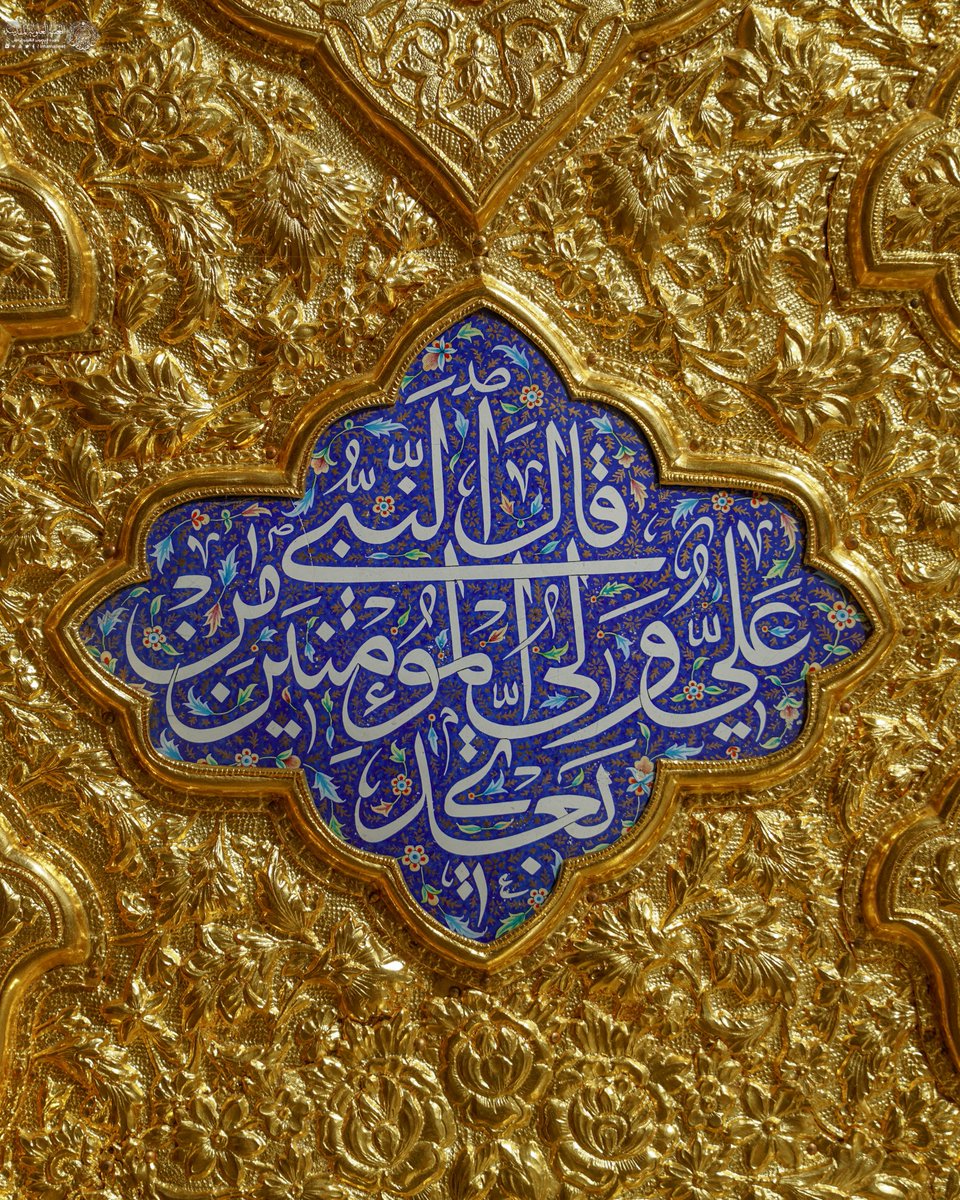 قَالَ النَّبِيُّ ص
عَلِيٌّ وَلِيُّ الْمُؤْمِنِينَ مِنْ
بَعْدِي